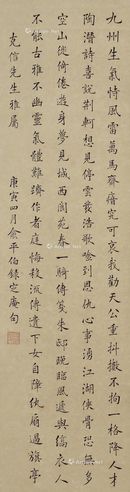 九州生氣恃風雷萬馬齊瘖究可哀我勸天公重抖擻不拘一格降人才
陶潛詩喜說荊軻想見停雲發浩歌吟到恩仇心事湧江湖俠骨恐無多
空山徙倚倦遊身夢見城西閬苑春一騎傳箋朱邸晚臨風遞與縞衣人
不能古雅不幽靈氣體難躋作者庭悔殺流傳遺下女自障紈扇過旗亭
克信先生雅屬
庚寅四月俞平伯錄定庵句